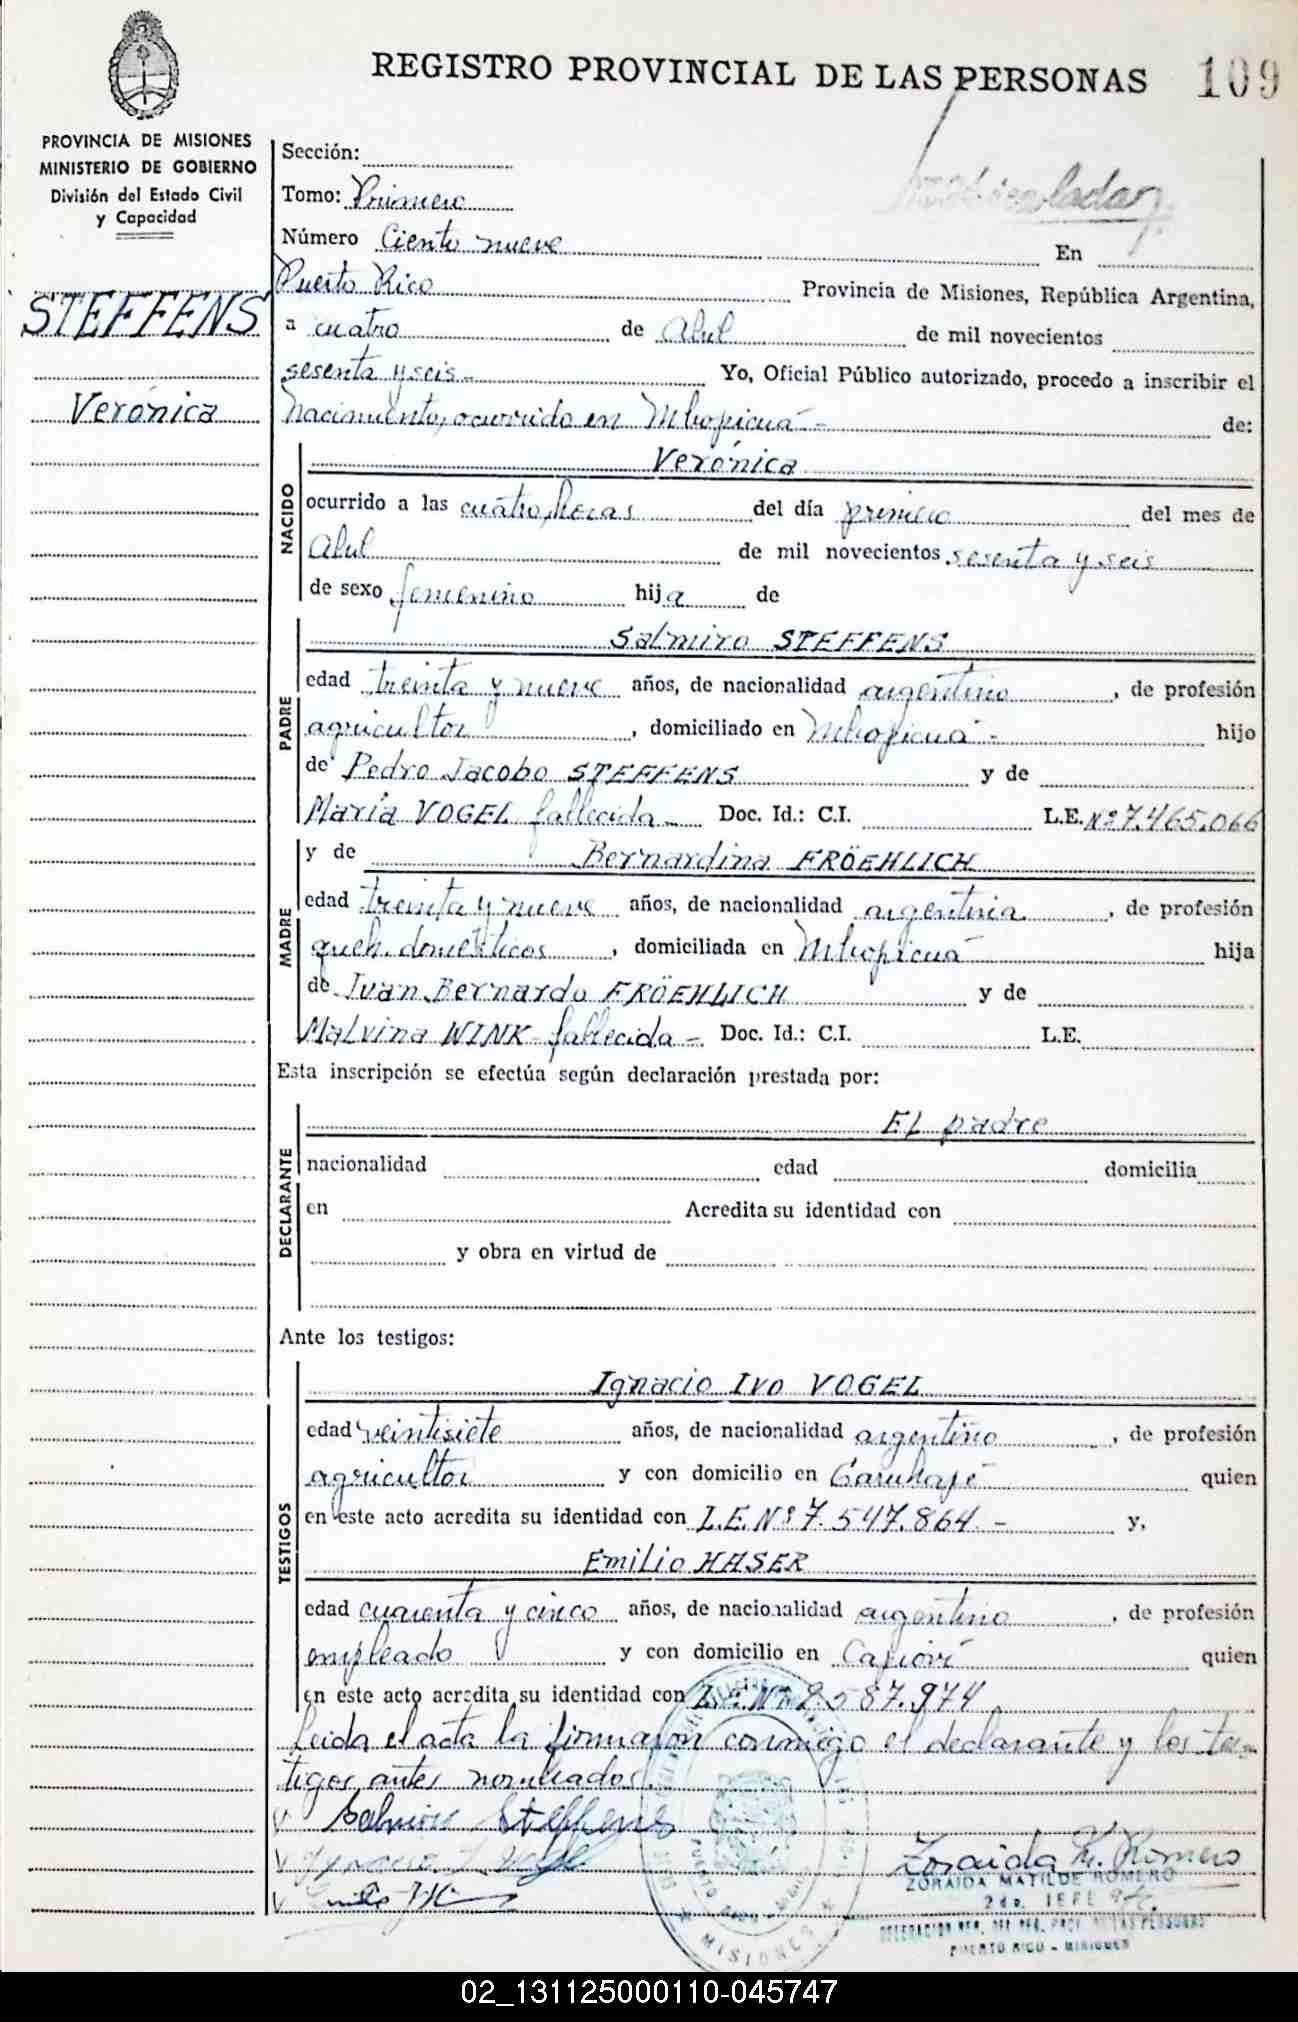 REGISTRO PROVINCIAL DE LAS PERSONAS 109
PROVINCIA DE MISIONES
MINISTERIO DE GOBIERNO
División del Estado Civil
y Capacidad
STEFFENS
Verónica
Sección:
Tomo: Primero
Número Ciento nueve En
Puerto Rico Provincia de Misiones, República Argentina,
a cuatro de Abril de mil novecientos
sesenta y seis- Yo, Oficial Público autorizado, procedo a inscribir el
Nacimiento, ocurrido en Mbopicuá- de:
NACIDO
Verónica
ocurrido a las cuatro horas del día primero del mes de
Abril de mil novecientos sesenta y seis
de sexo femenino hija de
PADRE
Salmiro STEFFENS
edad treinta y nueve años, de nacionalidad argentino, de profesión
agricultor, domiciliado en Mbopicuá- hijo
de Pedro Jacobo STEFFENS y de
María VOGEL fallecida- Doc. Id.: C.I. L.E. Nº 7.465.066
MADRE
y de Bernardina FRÖEHLICH
edad treinta y nueve años, de nacionalidad argentina, de profesión
queh. domésticos, domiciliada en Mbopicuá hija
de Juan Bernardo FRÖEHLICH y de
Malvina WINK- fallecida- Doc. Id.: C.I. L.E.
Esta inscripción se efectúa según declaración prestada por:
DECLARANTE
El padre
nacionalidad edad domicilia
en Acredita su identidad con
y obra en virtud de
Ante los testigos:
TESTIGOS
Ignacio Ivo VOGEL
edad veintisiete años, de nacionalidad argentino, de profesión
agricultor y con domicilio en Garuhapé quien
en este acto acredita su identidad con L.E. Nº 7.547.864.- y,
Emilio HASER
edad cuarenta y cinco años, de nacionalidad argentino, de profesión
empleado y con domicilio en Capioví quien
en este acto acredita su identidad con L.E. Nº 2.587.974
Leida el acta la firmaron conmigo el declarante y los tes-
tigos antes nombrados.
Salmiro Steffens
Zoraida M. Romero
ZORAIDA MATILDE ROMERO
2do. JEFE
PUERTO RICO - MISIONES
MISIONES
02_131125000110-045747